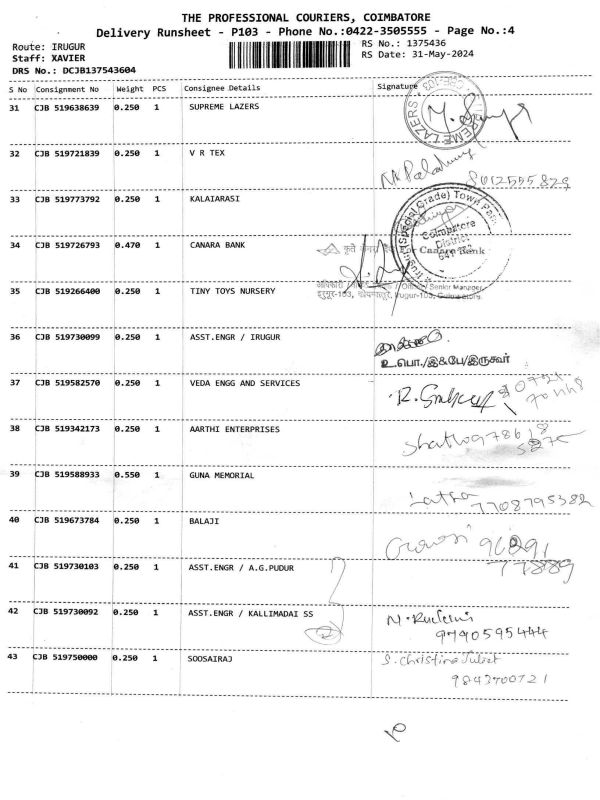 THE PROFESSIONAL COURIERS, COIMBATORE
Delivery Runsheet - P103 - Phone No.:0422-3505555 - Page No.:4
Route: IRUGUR
Staff: XAVIER
DRS No.: DCJB137543604
RS No.: 1375436
RS Date: 31-May-2024
S No Consignment No Weight PCS Consignee Details Signature
31 CJB 519638639 0.250 1 SUPREME LAZERS
32 CJB 519721839 0.250 1 V R TEX
33 CJB 519773792 0.250 1 KALAIARASI
Town
Coimbatore
District
34 CJB 519726793 0.470 1 CANARA BANK
कृते For Canara Bank
35 CJB 519266400 0.250 1 TINY TOYS NURSERY
Senior Manager
36 CJB 519730099 0.250 1 ASST.ENGR / IRUGUR
உ.பொ./இ&பே/இருகூர்
37 CJB 519582570 0.250 1 VEDA ENGG AND SERVICES
38 CJB 519342173 0.250 1 AARTHI ENTERPRISES
39 CJB 519588933 0.550 1 GUNA MEMORIAL
Latha
7708795382
40 CJB 519673784 0.250 1 BALAJI
41 CJB 519730103 0.250 1 ASST.ENGR / A.G.PUDUR
77889
42 CJB 519730092 0.250 1 ASST.ENGR / KALLIMADAI SS
9790595444
43 CJB 519750000 0.250 1 SOOSAIRAJ
S. Christina Juliet
9843700721